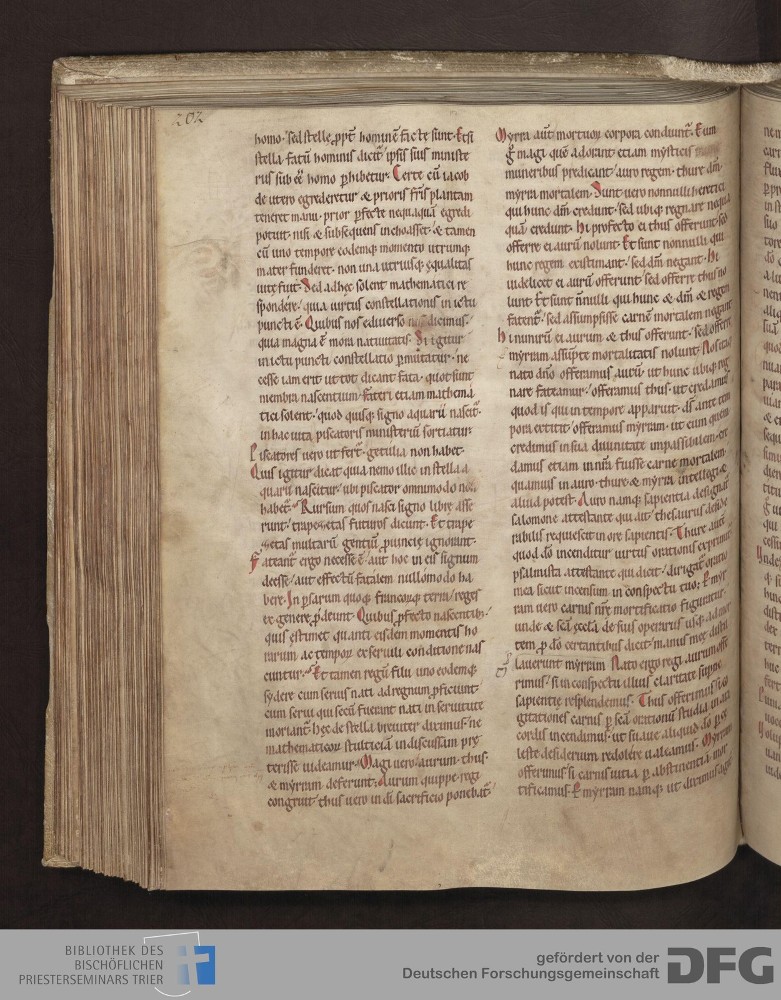 202
homo. sed stellę ꝓpt̄ hominē factę sunt. Et si
stella fatū hominis dicit̄. ipsis suis ministe
riis sub eē homo ꝑhibetur. Certe cū iacob
de utero egrederetur & prioris fr̄is plantam
teneret manu. prior ꝑfecte nequaquā egredi
potuit. nisi & subsequens inchoasset. & tamen
cū uno tempore eodemq; momento utrumq;
mater funderet. non una utriusq; ęqualitas
uitę fuit. Sed ad hęc solent mathematici re
spondere. quia uirtus constellationis in ictu
puncti ē. Quibus nos e diuerso dicimus.
quia magna ē mora natiuitatis. Si igitur
in ictu puncti constellatio ꝑmutatur. ne
cesse iam erit ut tot dicant fata. quot sunt
membra nascentium. Fateri etiam mathema
tici solent. quod quisq; signo aquarii nascit̄.
in hac uita piscatoris ministeriū sortiatur.
Piscatores uero ut fert̄. getulia non habet.
Quis igitur dicat quia nemo illic in stella a
quarii nascitur. ubi piscator omnimodo non
habet̄. Rursum quos nasci signo librę asse
runt. trapezetas futuros dicunt. Et trape
zetas multarū gentiū ꝓuincię ignorant.
Fateant̄ ergo necesse ē. aut hoc in eis signum
deesse. aut effectū fatalem nullomodo ha
bere. In ꝑsarum quoq; francorq; terra. reges
ex genere ꝓdeunt. Quibus ꝓfecto nascentib;
quis ęstimet quanti eisdem momentis ho
rarum ac tempor̄ ex seruili conditione nas
cuntur. Et tamen regū filii uno eodemq;
sydere cum seruis nati ad regnum ꝓficiunt.
cum serui qui secū fuerant nati in seruitute
moriant̄. Hęc de stella breuiter diximus. ne
mathematicor̄ stulticiā indiscussam prę
terisse uideamur. Magi uero. aurum. thus.
& myrram deferunt. Aurum quippe regi
congruit. thus uero in dī sacrificio ponebat̄.
Myrra aut̄ mortuor̄ corpora condiunt̄. Eum
g̊ magi quē adorant. etiam mysticis
muneribus predicant. auro regem. thure dm̄.
myrra mortalem. Sunt uero nonnulli heretici
qui hunc dm̄ credunt. sed ubiq; regnare nequa
quā credunt. Hi ꝓfecto ei thus offerunt. sed
offerre ei aurū nolunt. Et sunt nonnulli qui
hunc regem existimant. sed dm̄ negant. Hi
uidelicet ei aurū offerunt. sed offerre thus no
lunt. Et sunt n̄nulli qui hunc & dm̄ & regem
fatent̄. sed assumpsisse carnē mortalem negant.
Hi nimirū ei aurum & thus offerunt. sed offerre
myrram assūptę mortalitatis nolunt. Nos itaq;
nato dn̄o offeramus aurū. ut hunc ubiq; reg
nare fateamur. offeramus thus. ut credamus
quod is qui in tempore apparuit. ds̄ ante tem
pora extitit. offeramus myrram. ut eum quem
credimus in sua diuinitate impassibilem. cre
damus etiam in nr̄a fuisse carne mortalem.
quamuis in auro. thure. & myrra intellegi &
aliud potest. Auro namq; sapientia designat̄.
salomone attestante qui ait. thesaurus deside
rabilis requiescit in ore sapientis. Thure aut̄
quod dō incenditur uirtus orationis exprimit̄.
psalmista attestante qui dicit. dirigat̄ oratio
mea sicut incensum in conspectu tuo. Per myr
ram uero carnis nrę mortificatio figuratur.
unde & scā ęccla de suis operariis usq; ad mor
tem ꝓ dō certantibus dicit. manus meę distil
lauerunt myrram. Nato ergo regi. aurum offe
rimus. si in conspectu illius claritate supnę
sapientię resplendemus. Thus offerimus. si co
gitationes carnis ꝑ scā orationū studia in ara
cordis incendimus. ut suaue aliquid dō ꝑ cę
leste desiderium redolere ualeamus. Myrram
offerimus. si carnis uitia ꝑ abstinentiā mor
tificamus. Per myrram namq; ut diximus agit̄
BIBLIOTHEK DES
BISCHÖFLICHEN
PRIESTERSEMINARS TRIER
gefördert von der
Deutschen Forschungsgemeinschaft
DFG